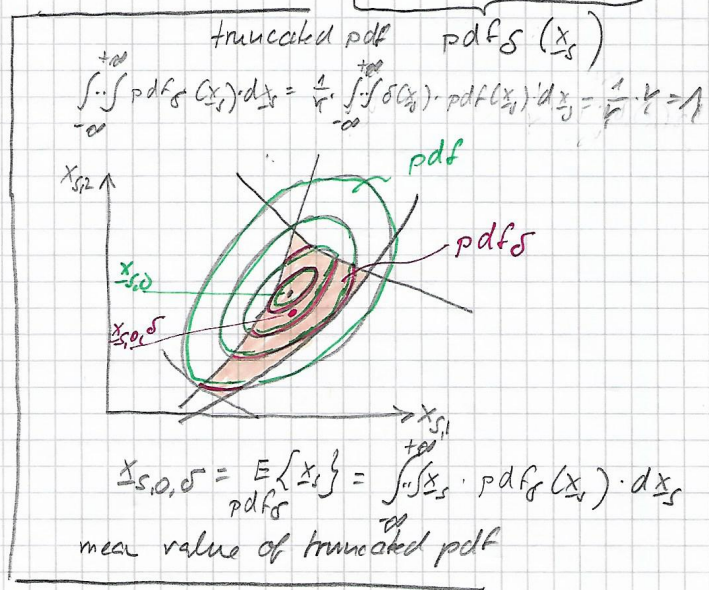 truncated pdf pdf_δ (x_s)
∫_{-∞}^{+∞}..∫ pdf_δ (x_s)·dx_s = 1/Y · ∫_{-∞}^{+∞}..∫ δ(x_s) · pdf(x_s)·dx_s = 1/Y · Y = 1
x_{s,2}
pdf
pdf_δ
x_{s,0}
x_{s,0,δ}
x_{s,1}
x_{s,0,δ} = E_{pdf_δ}{x_s} = ∫_{-∞}^{+∞}..∫ x_s · pdf_δ (x_s) · dx_s
mean value of truncated pdf